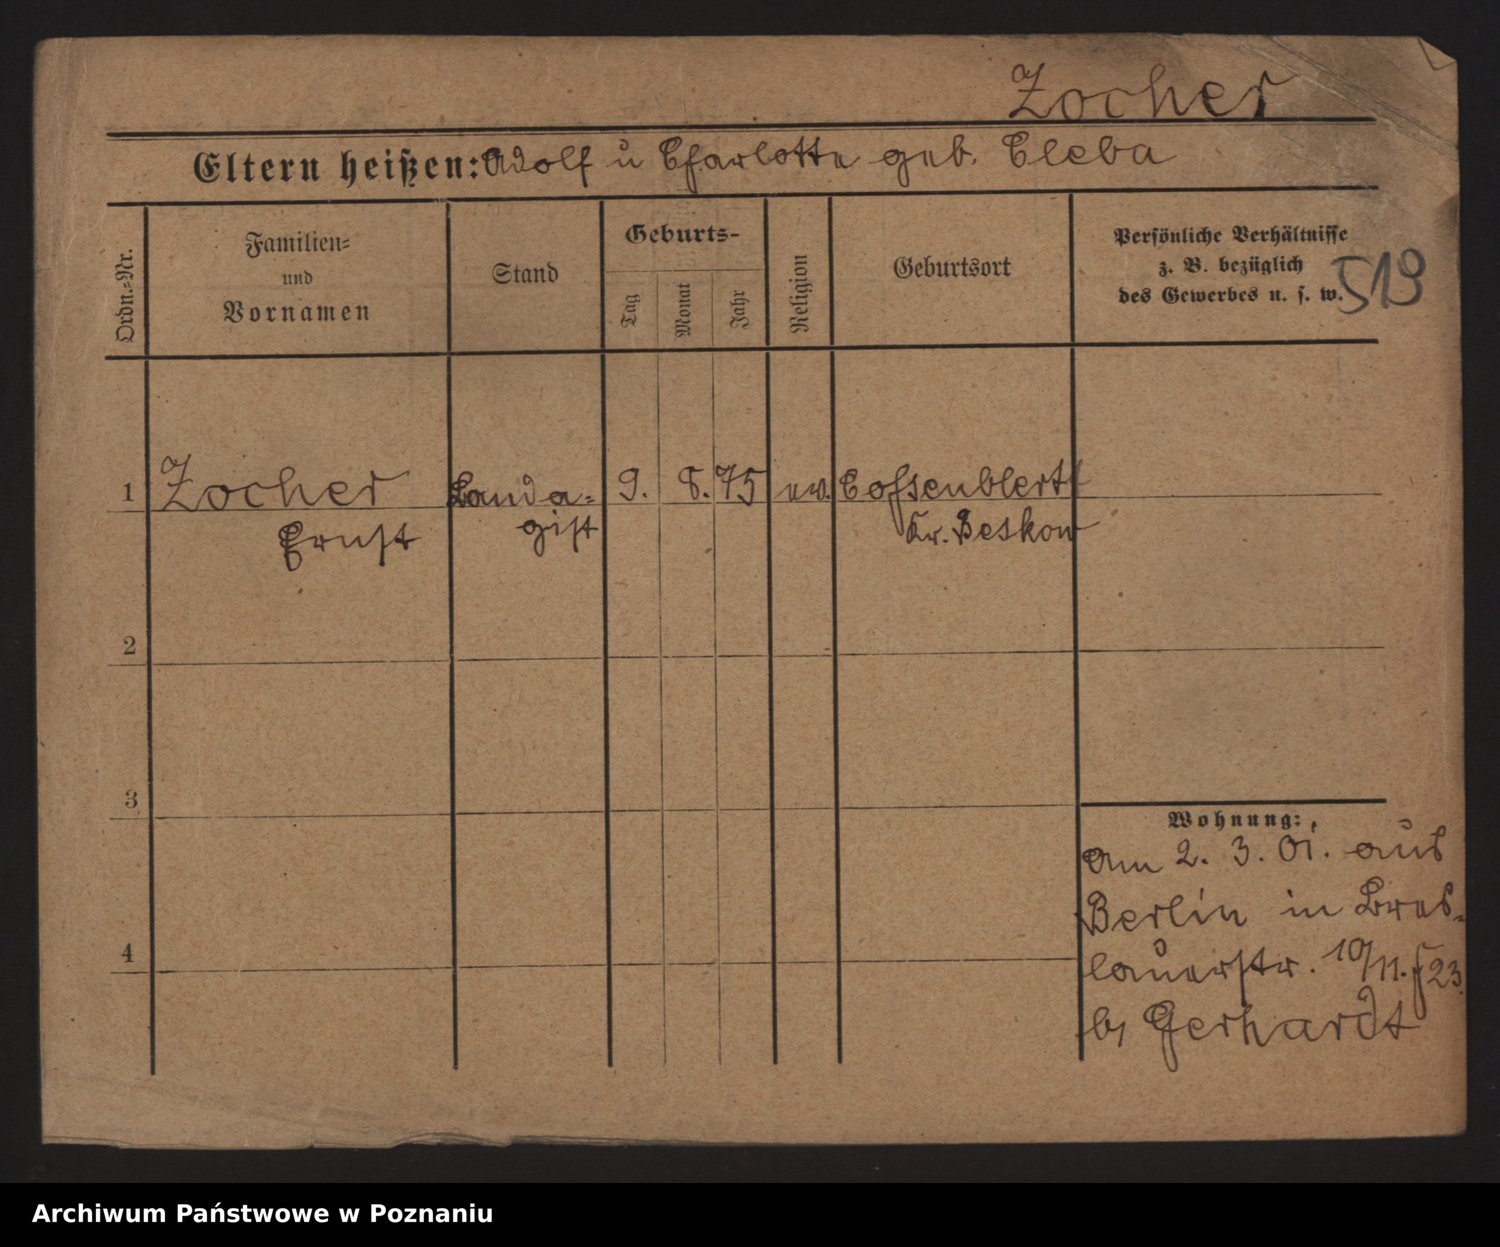 Zocher
Eltern heißen: Adolf u Charlotte geb. Cleba
Ordn.-Nr.
Familien-
und
Vornamen
Stand
Geburts-
Tag
Monat
Jahr
Religion
Geburtsort
Persönliche Verhältnisse
z. B. bezüglich
des Gewerbes u. s. w.
519
1 Zocher Banda- 9. 8. 75 ev.
Ernst gist Kr. Beskow
2
3
4
Wohnung:
Am 2. 3. 01. aus
Berlin in Bres-
lauerstr. 10/11. 23.
b/ Gerhardt
Archiwum Państwowe w Poznaniu